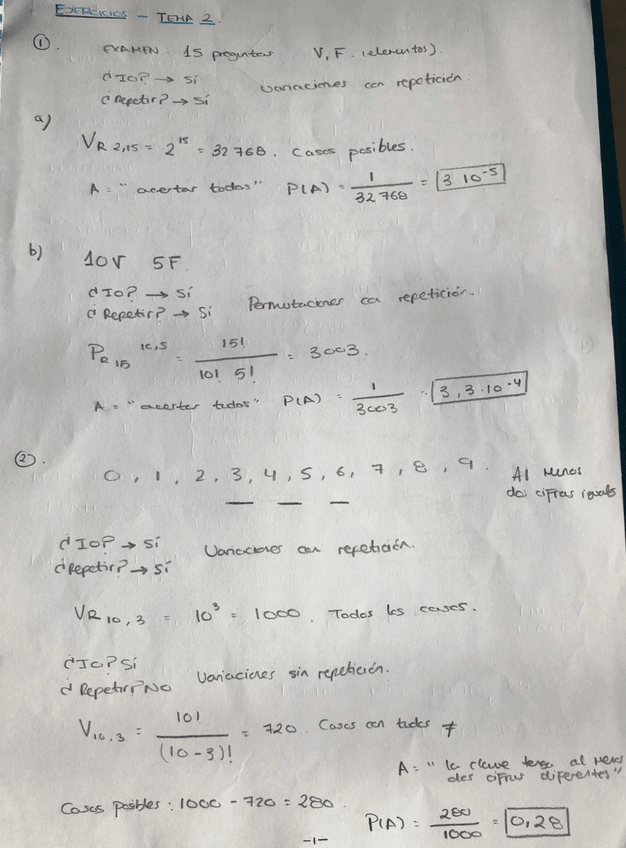 EJERCICIOS - TEMA 2.
①. EXAMEN: 15 preguntas V, F. (elementos).
¿IO? → Sí
¿Repetir? → Sí
Variaciones con repetición.
a)
VR 2,15 = 2^15 = 32 768. Casos posibles.
A: "acertar todas" P(A) = 1/32 768 = 3·10^-5
b) 10V 5F.
¿IO? → Sí
¿Repetir? → Sí
Permutaciones con repetición.
PR 15 10,5 = 15!/(10! 5!) = 3003.
A = "acertar todas" P(A) = 1/3003 = 3,3·10^-4
②. 0, 1, 2, 3, 4, 5, 6, 7, 8, 9.
Al menos
dos cifras iguales
¿IO? → Sí
¿Repetir? → Sí
Variaciones con repetición.
VR 10,3 = 10^3 = 1000. Todos los casos.
¿IO? Sí
¿Repetir? NO
Variaciones sin repetición.
V10,3 = 10!/(10-3)! = 720. Casos con todas ≠
A = "la clave tenga al menos
dos cifras diferentes"
Casos posibles: 1000 - 720 = 280.
P(A) = 280/1000 = 0,28
-1-